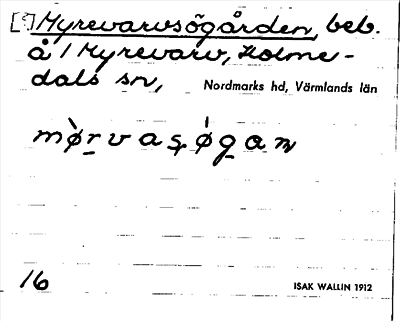 [?] Myrevarvsögården, beb.
å 1 Myrevarv, Holme-
dals sn, Nordmarks hd, Värmlands län
mø̀rvasǿgaɳ
16
ISAK WALLIN 1912